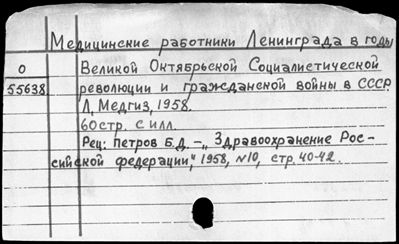 Медицинские работники Ленинграда в годы
О Великой Октябрьской Социалистической
55638 революции и гражданской войны в СССР
Л, Медгиз, 1958.
60стр. с илл.
Рец: Петров Б.Д. –„ Здравоохранение Рос-
сийской федерации," 1958, N10, стр. 40-42.